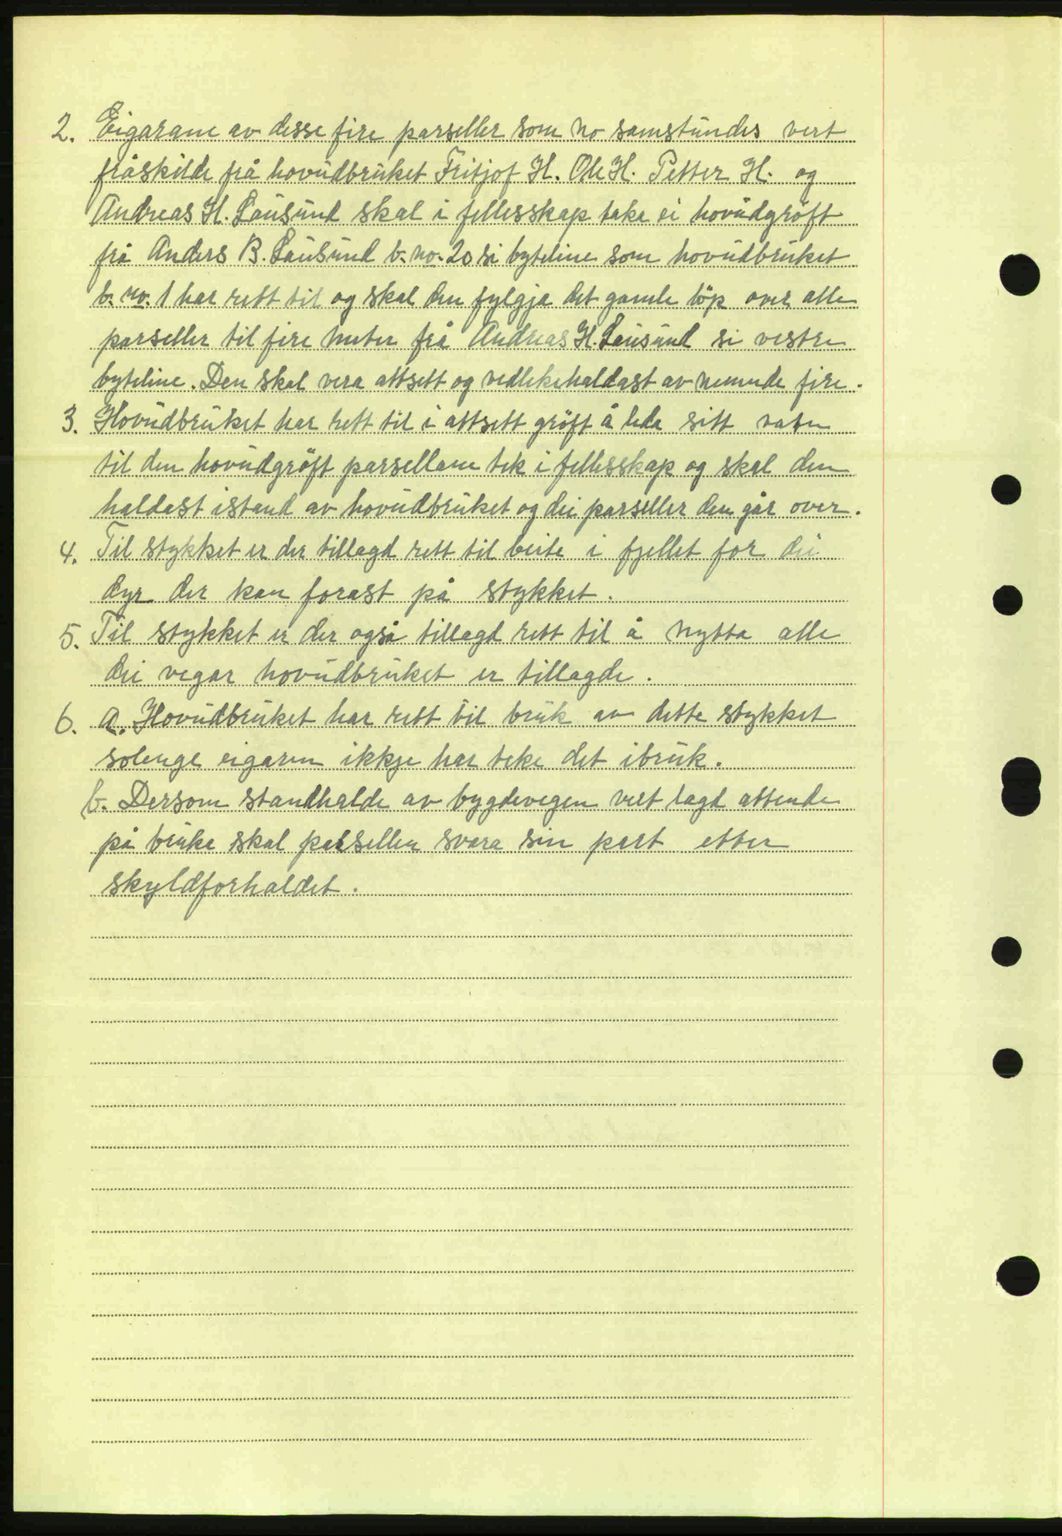 2. Eigarane av desse fire parseller som no samstundes vert
fråskilde frå hovudbruket Fritjof H. Ole H. Petter H. og
Andreas H. Lausund skal i fellesskap take ei hovudgrøft
frå Anders B. Lausund b. no. 20 si byteline som hovudbruket
b. no. 1 har rett til og skal den fylgja det gamle löp over alle
parseller til fire meter frå Andreas H. Lausund si vestre
byteline. Den skal vera attsett og vedlikehaldast av nemnde fire.
3. Hovudbruket har rett til i attsett gröft å leda sitt vatn
til den hovudgröft parsellane tek i fellesskap og skal den
haldast istand av hovudbruket og dei parseller den går over.
4. Til stykket er der tillagd rett til beite i fjellet for dei
dyr der kan forast på stykket.
5. Til stykket er der også tillagd rett til å nytta alle
dei vegar hovudbruket er tillagde.
6. a. Hovudbruket har rett til bruk av dette stykket
solenge eigaren ikkje har teke det ibruk.
b. Dersom standhalde av bygdevegen vert lagd attende
på bruka skal parsellen svara sin part etter
skyldforhaldet.